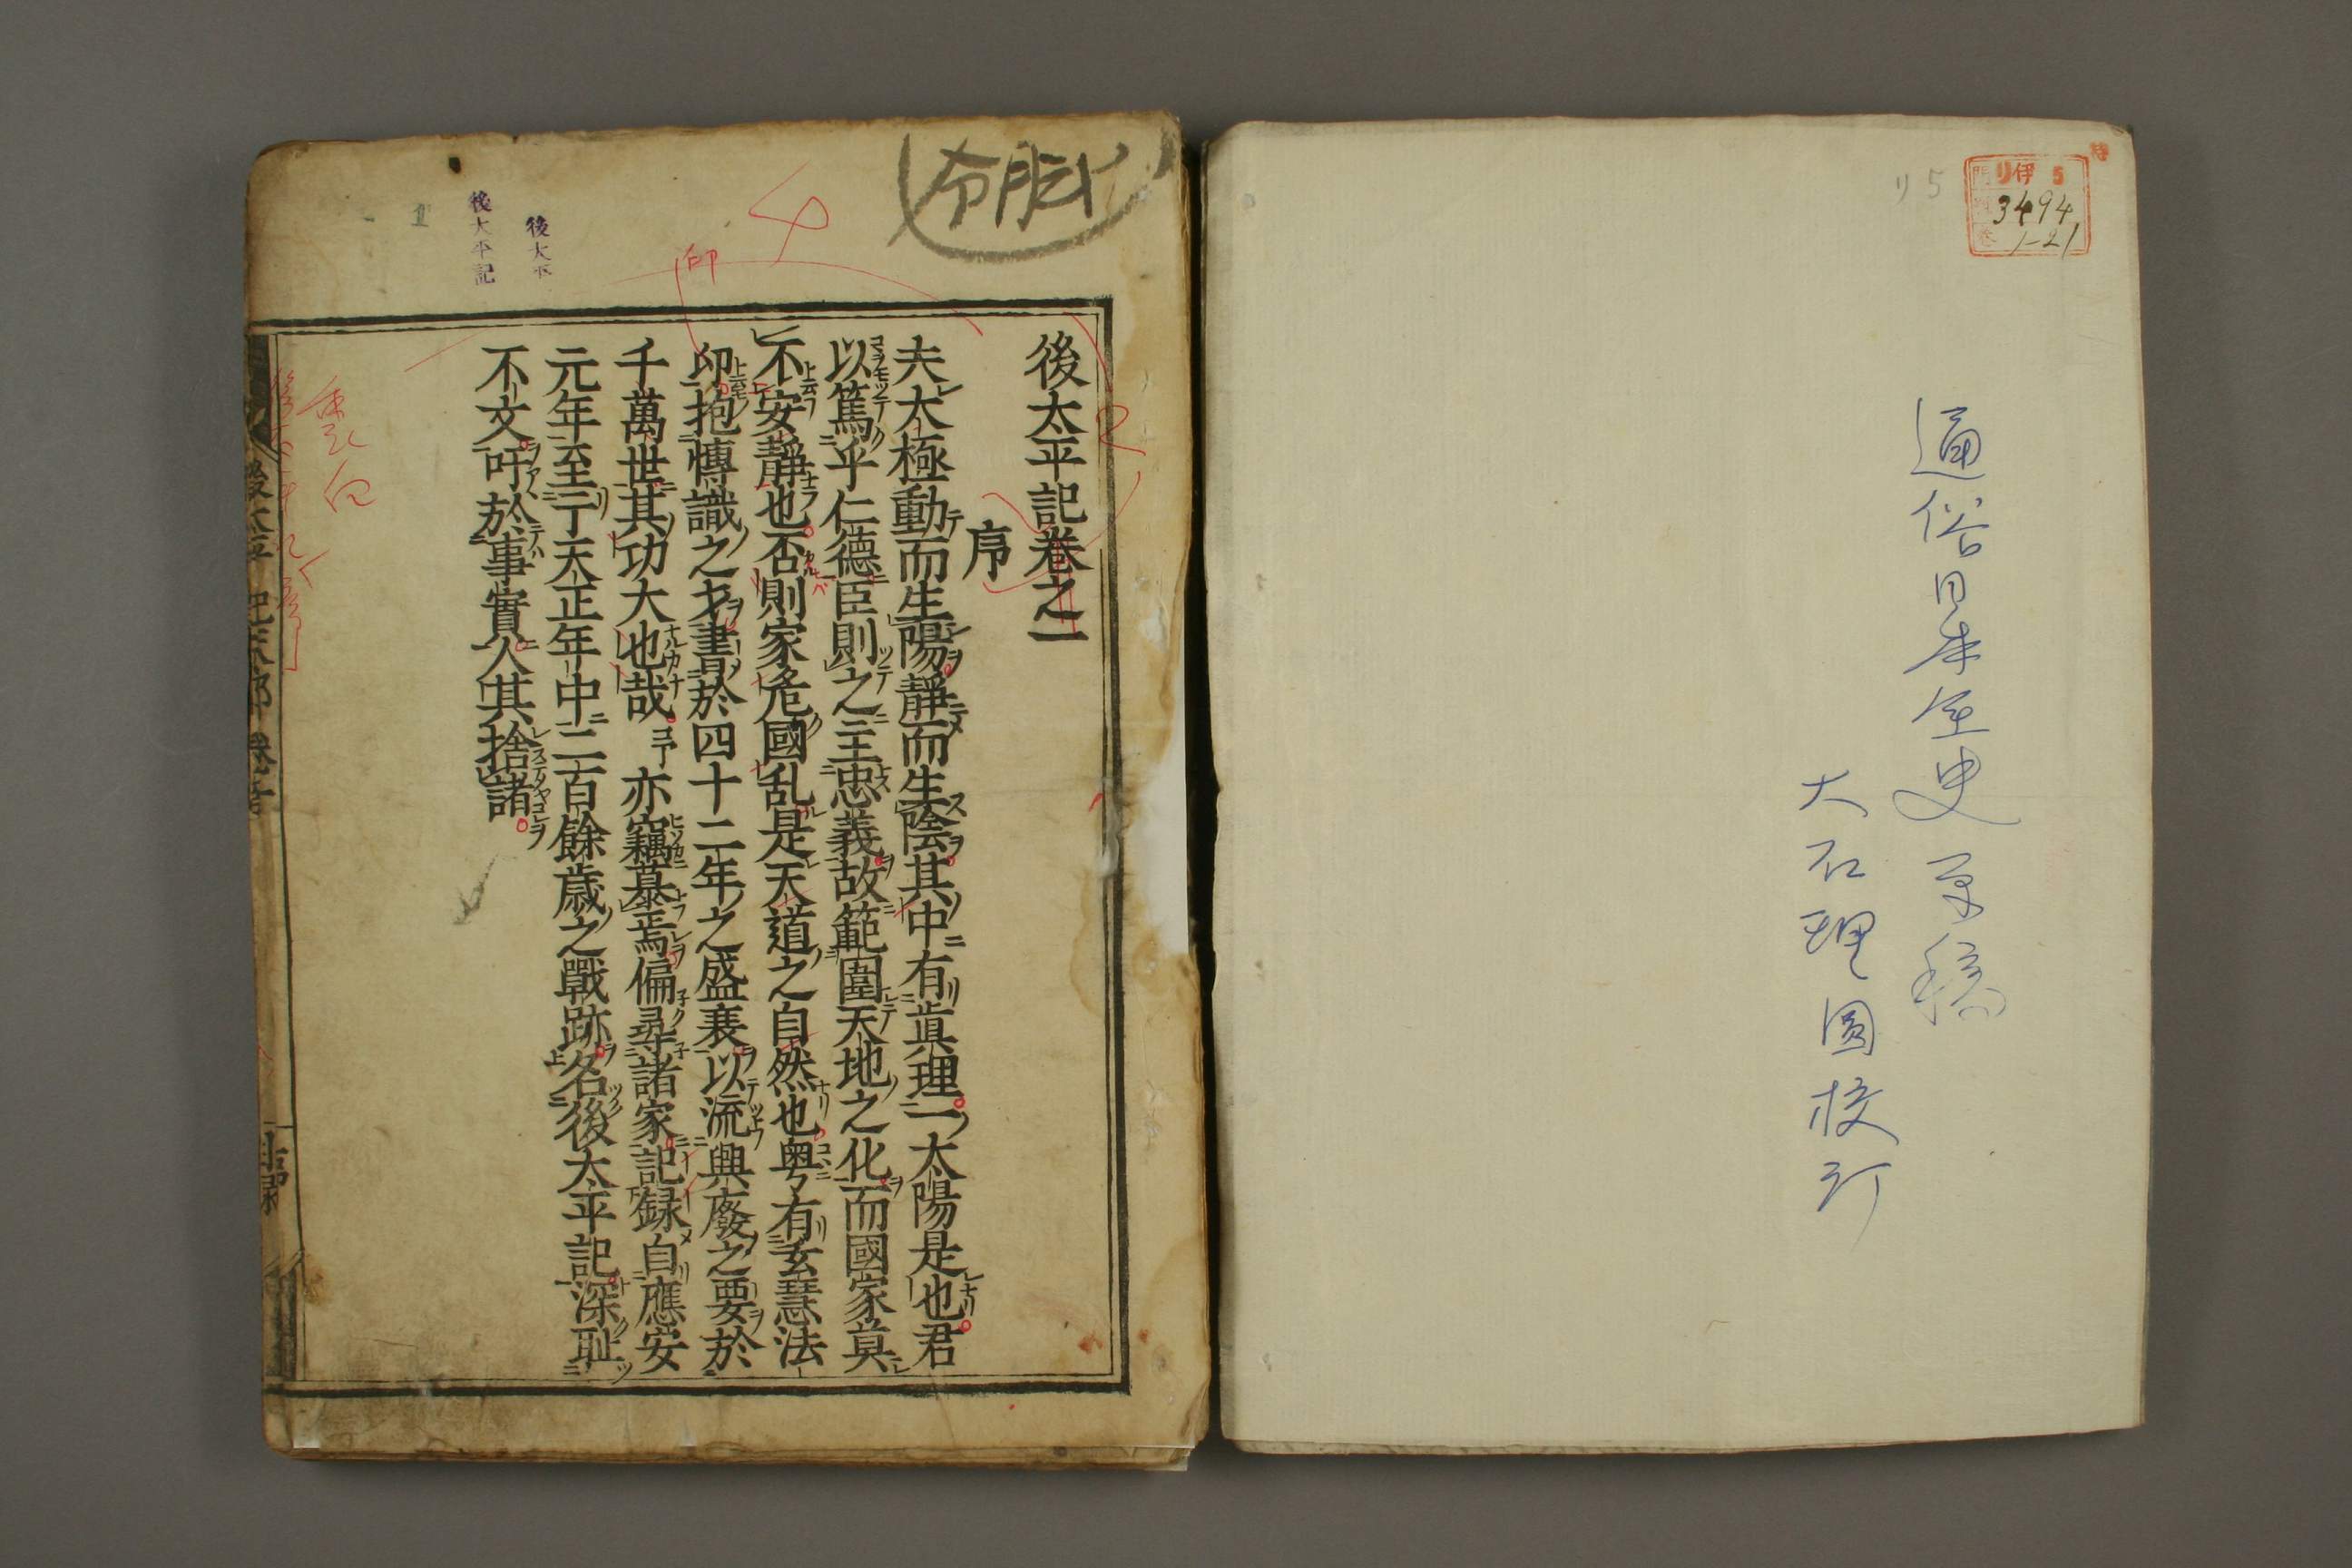 特
リ 伊 5
3494
1-21
リ5
通俗日本全史 原稿
大石理圓校訂
後太平記巻之一
序
夫太極動而生陽靜而生陰其中有眞理一太陽是也君
以篤乎仁德臣則之主忠義故範圍天地之化而國家莫
不安靜也否則家危國乱是天道之自然也粤有玄慧法
印抱博識之才書於四十二年之盛衰以流興廢之要於
千萬世其功大也哉予亦竊慕焉偏尋諸家記録自應安
元年至于天正年中二百餘歳之戰跡名後太平記深耻
不文吁於事實人其捨諸
印
後太平
後太平記
1